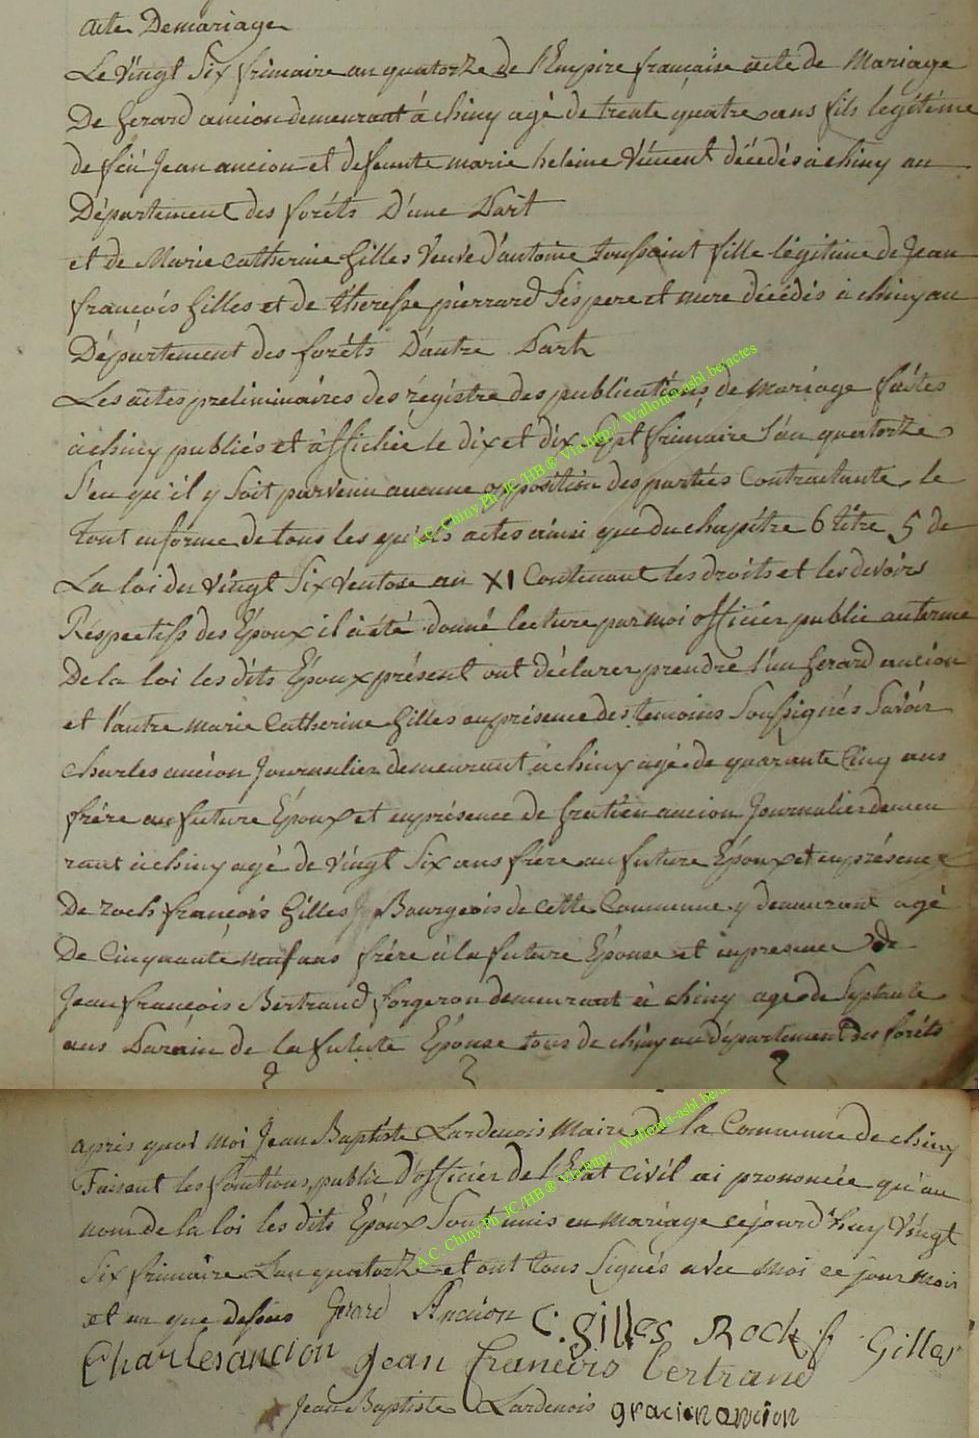 acte Demariage
Le vingt Six frimaire an quatorze de l'Empire française acte de Mariage
De Gerard ancion demeurant á chiny agé de trente quatre ans fils legitime
de feü Jean ancion et defeunte marie heleine Vincent décédés à chiny au
Département des foréts D'une Part
et de Marie Catherine Gilles Veuve d'antoine toussaint fille légitime de Jean
françois Gilles et de théresse pierrard Ses pere et mere décédés à chiny au
Département des foréts D'autre Part
Les actes preliminaires des régistre des publications de mariage faites
à chiny publiés et àffichée le dix et dix Sept frimaire l'an quatorze
S'en qu'il y Soit parvenu aucune opposition des parties Contractante, le
Tout enforme de tous les quéls actes ainsi que du chapitre 6 titre 5 de
La loi du vingt Six ventose an XI Contenant les droits et les devoirs
Réspectifs des Époux il à été donné lecture par moi officier public au terme
De la loi les dits Époux présent ont déclarer prendre l'un Gerard ancion
et l'autre marie Catherine Gilles en présence des temoins Soussignés Savoir
Charles ancion Journalier demeurant à chiny agé de quarante Cinq ans
frére au future Époux et enprésence de Gratien ancion Journalier demeu
rant à chiny agé de vingt Six ans frére au future Époux et enprésence
De roch françois Gilles Bourgeois de cette Commune y demeurant agé
De Cinquante neuf ans frére à la future Épouse et inpresence de
Jean françois Bertrand forgeron demeurant à chiny age de Septente
ans Parain de la future Épouse tous de chiny au département des foréts
apris quoi moi Jean Baptiste Lardenois Maire de la Commune de chiny
Faisent les fonctions public d'officier de l'État civil ai prononcée qu'au
nom de la loi les dits Époux Sont unis en mariage ce jourd'huy vingt
Six frimaire L'an quatorze et ont tous Signés avec moi ce jour mois
et an que dessus Gerard Ancion C. gilles Rock f Gilles
Charles ancion jean francois bertrand
Jean Baptiste Lardenois gracien ancion
A.C. Chiny Ph JC /HB ® Via http:// Wallonia-asbl.be/actes
A.C. Chiny Ph JC /HB ® Via http:// Wallonia-asbl.be/actes